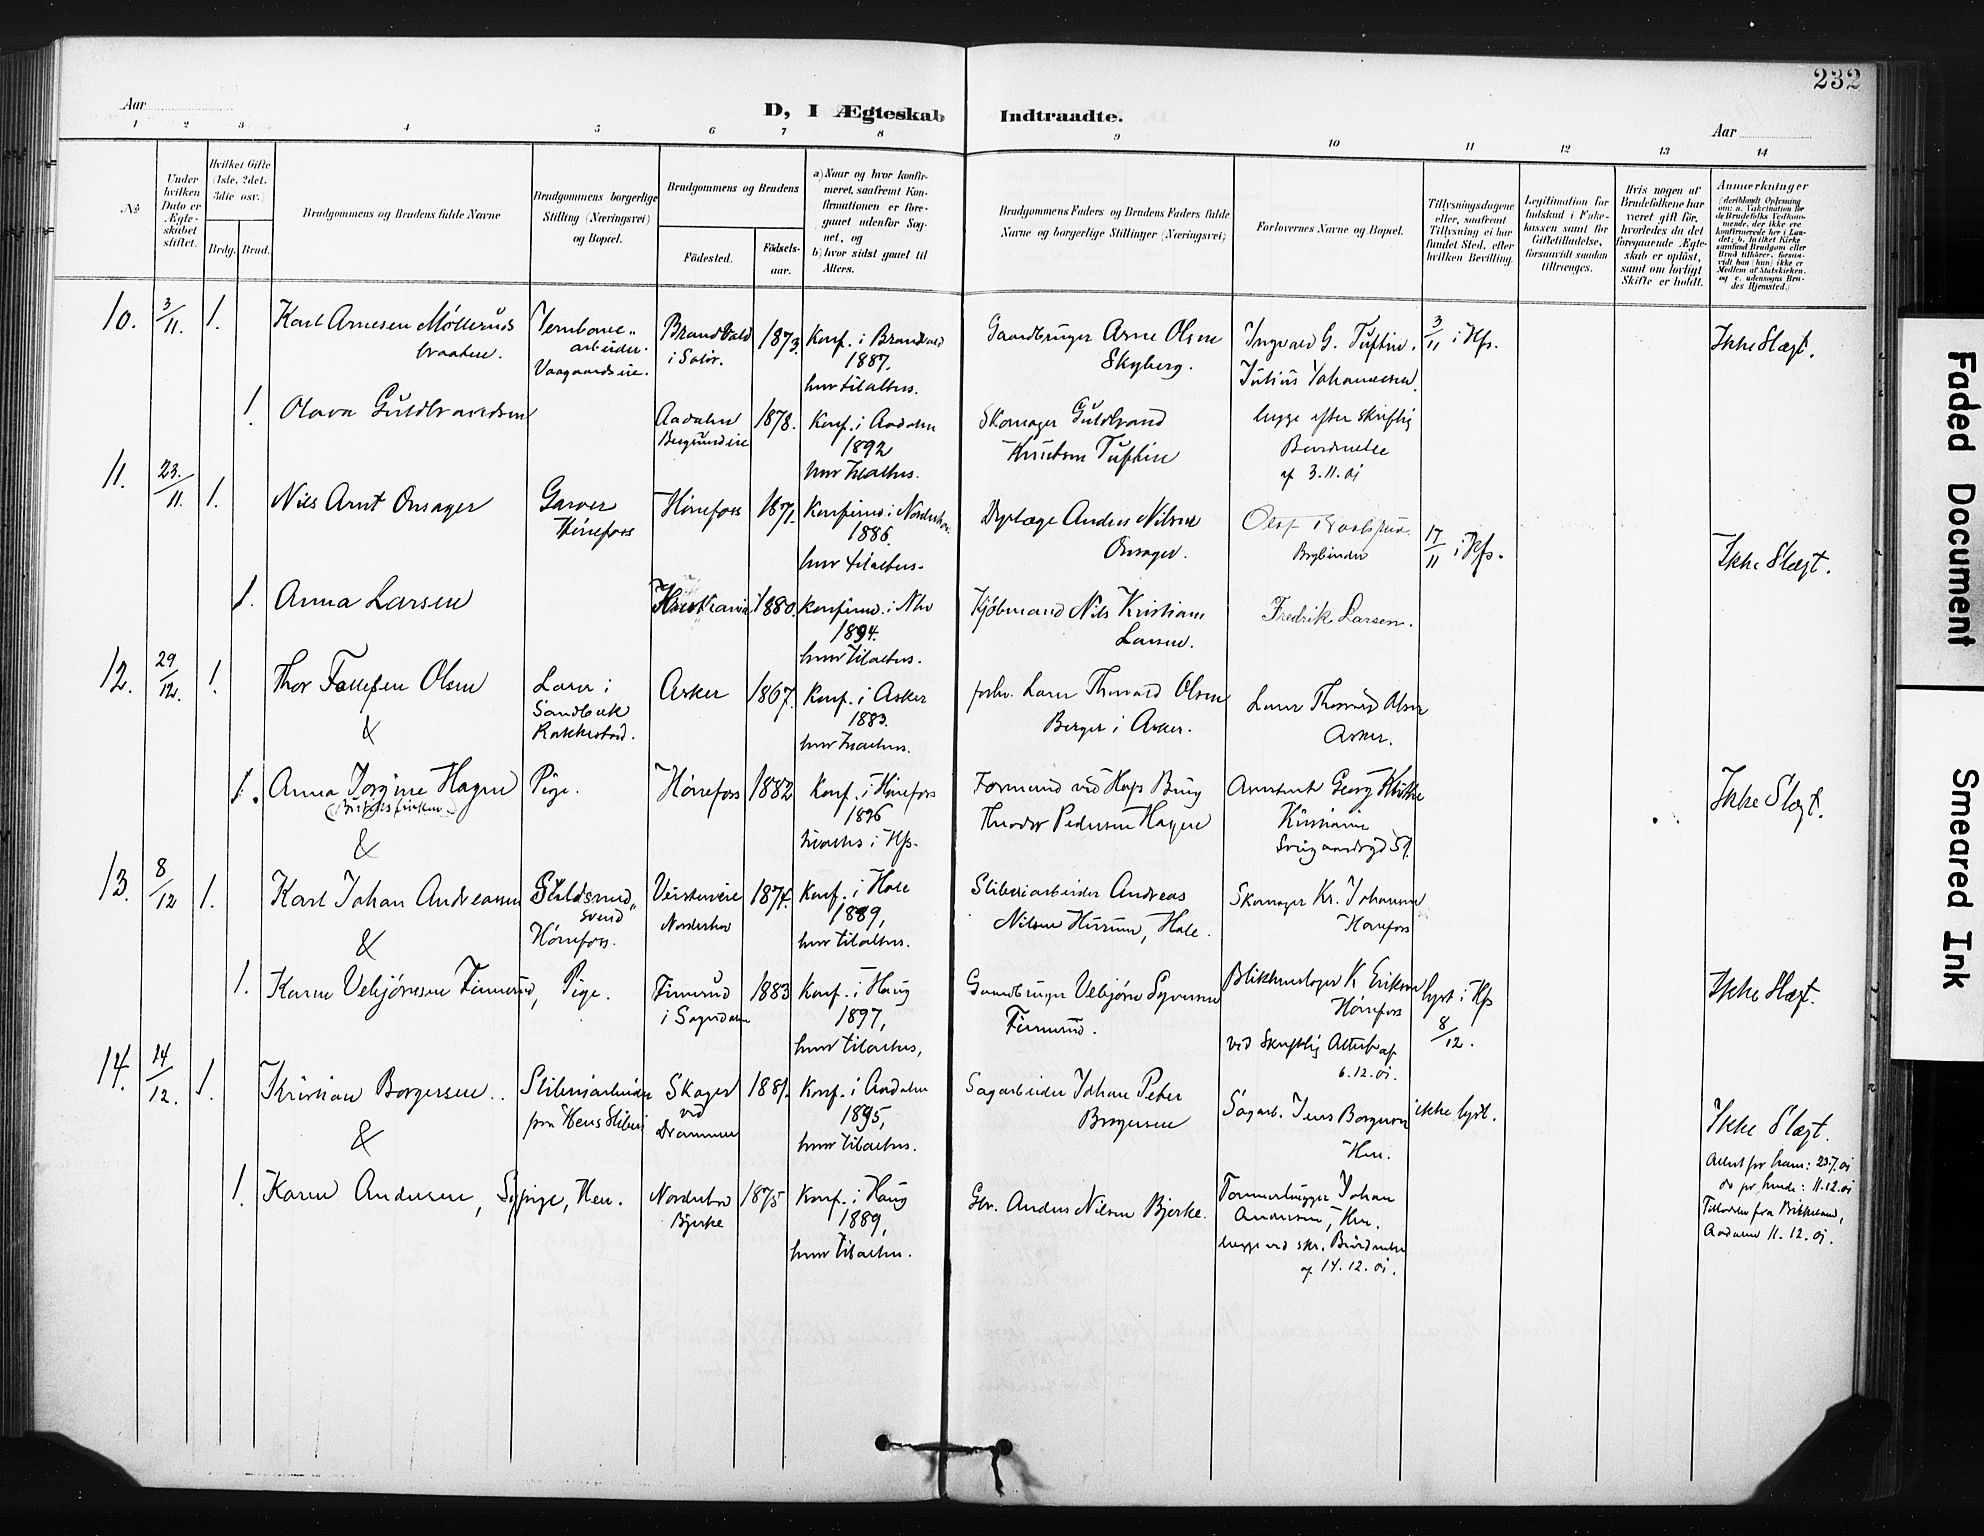 232
Aar
D, I Ægteskab Indtraadte.
Aar
1 2 3 4 5 6 7 8 9 10 11 12 13 14
№
Under hvilken Dato er Ægteskabet stiftet.
Hvilket Gifte (1ste, 2det, 3die osv.)
Brdg. Brud.
Brudgommens og Brudens fulde Navne
Brudgommens borgerlige Stilling (Næringsvei) og Bopæl.
Brudgommens og Brudens
Födested.
Födselsaar.
a) Naar og hvor konfirmeret, saafremt Konfirmationen er foregaaet udenfor Sognet, og
b) hvor sidst gaaet til Alters.
Brudgommens Faders og Brudens Faders fulde Navne og borgerlige Stillinger (Næringsvei)
Forlovernes Navne og Bopæl.
Tillysningsdagene eller, saafremt Tillysning ei har fundet Sted, efter hvilken Bevilling.
Legitimation for Indskud i Enkekassen samt for Giftetilladelse, forsaavidt saadan tiltrænges.
Hvis nogen af Brudefolkene har været gift før, hvorledes da det foregaaende Ægteskab er oplöst, samt om lovligt Skifte er holdt.
Anmærkninger
10. 3/11. 1. Karl Arnesen Möllerudsbraaten. Jernbanearbeider. Vaagaardseie. Brandvold i Solör. 1873. Konf. i Brandvold 1887. hver tilalters. Gaardbruger Arne Olsen Skyberg. Ingvald G. Tuftin. Julius Johannesen. 3/11 i Hfs. Ikke Slægt.
1. Olava Guldbrandsen Aadalen 1878. Konf. i Aadalen 1892 Skomager Guldbrand Knudsen Tuftin begge efter skriftlig af 3.11.01
11. 23./11. 1. Nils Arnt Onsager Garver Hönefoss Hönefoss 1871. Konfirm. i 1886. hver tilalters. Dyrlæge Anders Nilsen Onsager. 17/11 i Hfs. Ikke Slægt.
1. Anna Larsen Kristiania 1880. Konfirm. i 1894. hver tilalters. Kjöbmand Nils Kristian Larsen. Fredrik Larsen.
12. 29/12. 1. Thor Olsen Lærer i Sandbæk Rakkestad. Asker 1867. Konf. i Asker 1883. hver tilalters. Lærer Thorvald Olsen Berger i Asker. Lærer Thorvald Olsen Asker.
&
1. Anna Jörgine Hagen Pige. Hönefoss 1882 Konf. i Hönefoss 1896 tilalters i Hfs. Formand ved Hofs Brug Theodor Pedersen Hagen Georg Kristiania Ikke Slægt.
&
13. 8/12 1. Karl Johan Andreassen Guldsmedsvend Hönefoss. Norderhov 1874. Konf. i Hole 1889, hver tilalters. Sliberiarbeider Andreas Nilsen Hurum, Hole. Skomager Kr. Johannesen Hönefoss
&
1. Karen Vebjörnsen Finnerud, Pige. Finnerud i Sognedalen 1883 Konf. i Haug 1897, hver tilalters, Gaardbruger Vebjörn Syversen Finnerud. Blikkenslager K. Eriksen Hönefoss ved skriftlig Attest af 6.12.01. lyst i Hfs 8/12. Ikke Slægt.
14. 14/12. 1. Kristian Borgersen. Sliberiarbeider paa Hens Sliberi Skoger ved Drammen 1881. Konf. i Aadalen 1895, hver tilalters. Sagarbeider Johan Peter Borgersen Sagarb. Jens Borgersen Hen. ikke lyst. Ikke Slægt.
Attest for ham: 23.7.01
do for hende: 11.12.01
Aadalen 11.12.01.
&
1. Karen Andersen, Sypige, Hen. Norderhov Bjerke 1875 Konf. i Haug 1889, hver tilalters. Gbr. Anders Nilsen Bjerke. Tömmerhugger Johan Andersen, Hen. begge ved skr. af 14.12.01.
Faded Document
Smeared Ink